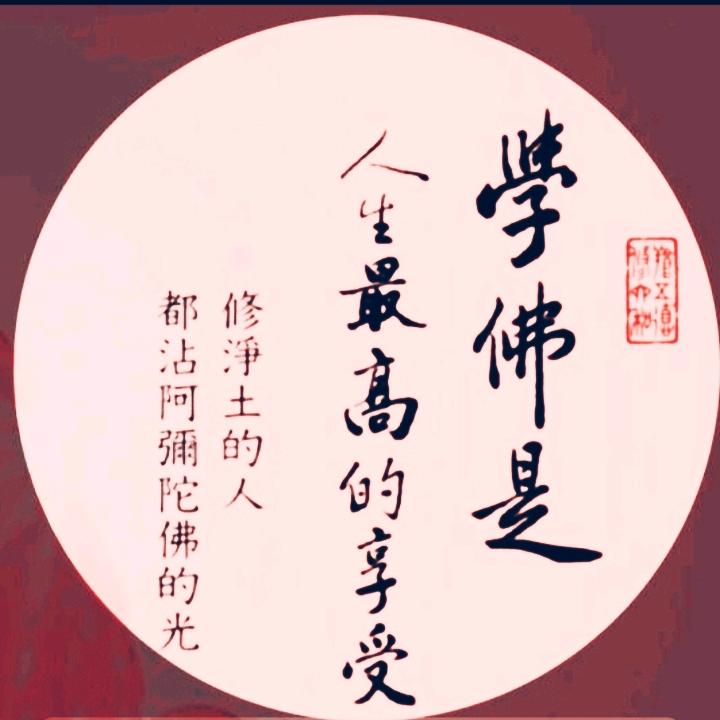 學佛是
人生最高的享受
修淨土的人
都沾阿彌陀佛的光